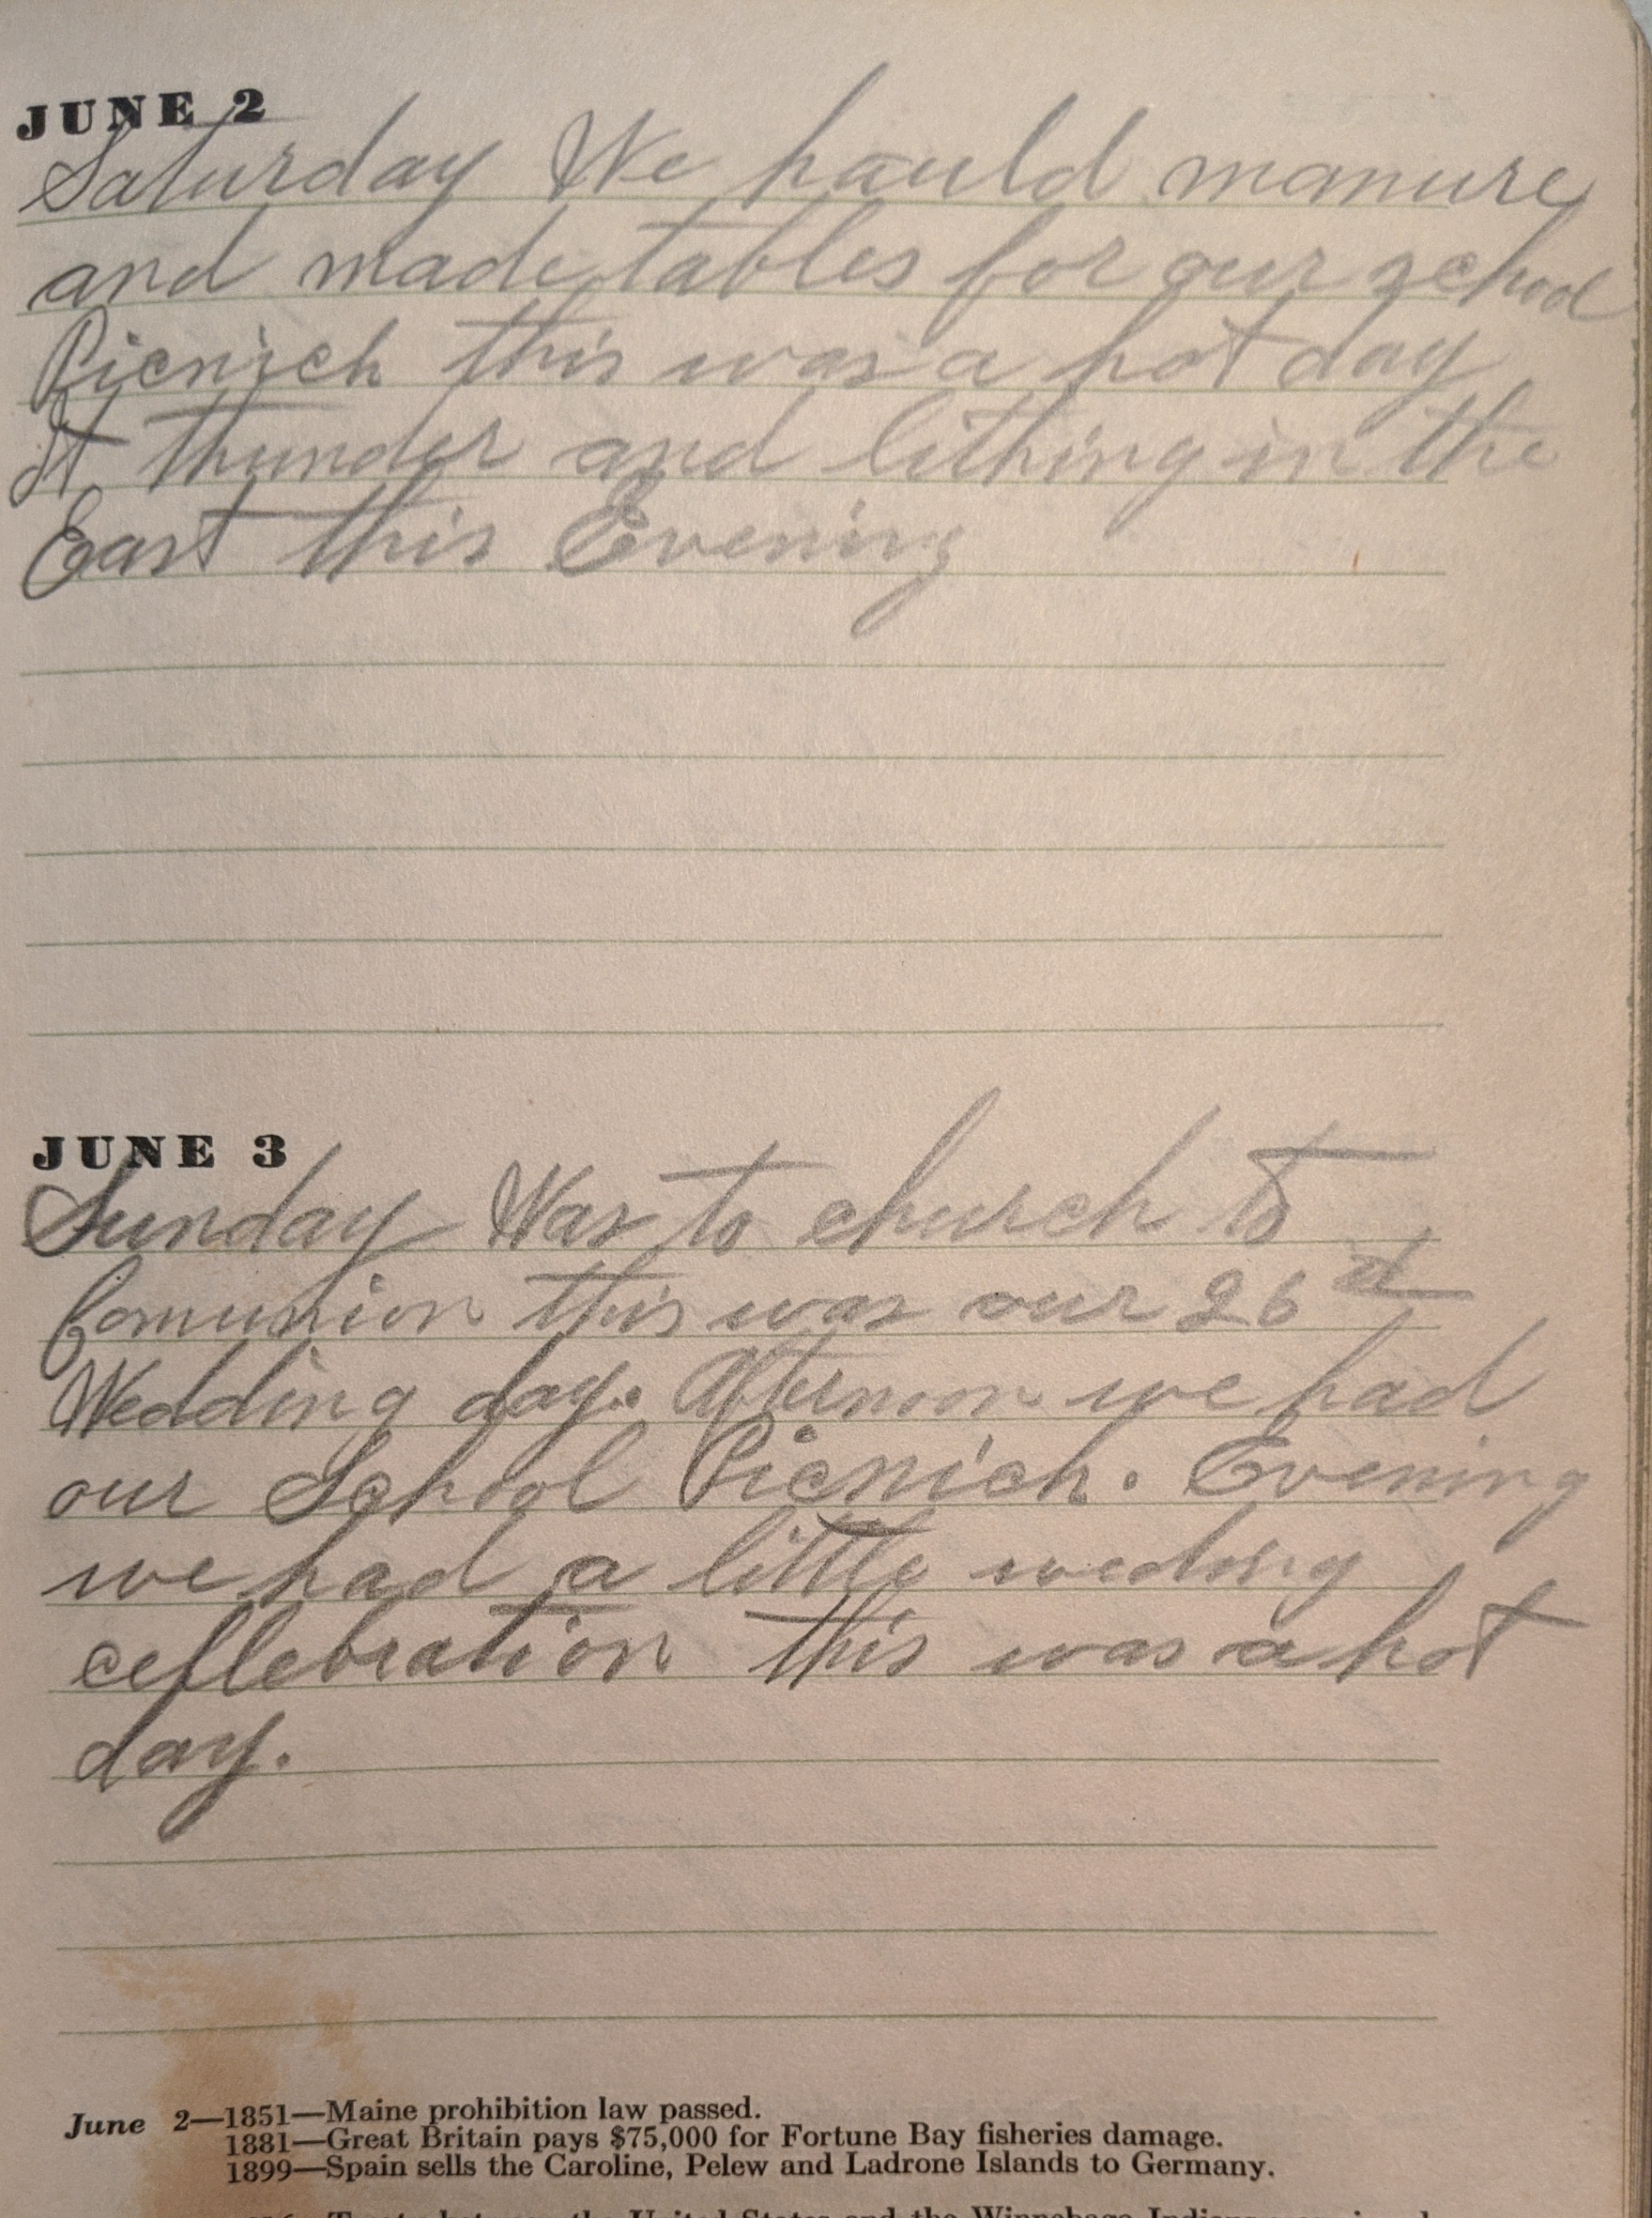 JUNE 2
Saturday We hauld manure
and made tables for our school
Picnich this was a hot day
It thunder and lithing in the
East this Evening
JUNE 3
Sunday Was to church to
Comunion this was our 26th
Wedding day. Afternoon we had
our School Picnich. Evening
we had a little weding
cellebration this was a hot
day.
June 2—1851—Maine prohibition law passed.
1881—Great Britain pays $75,000 for Fortune Bay fisheries damage.
1899—Spain sells the Caroline, Pelew and Ladrone Islands to Germany.
the United States and the Winnebago